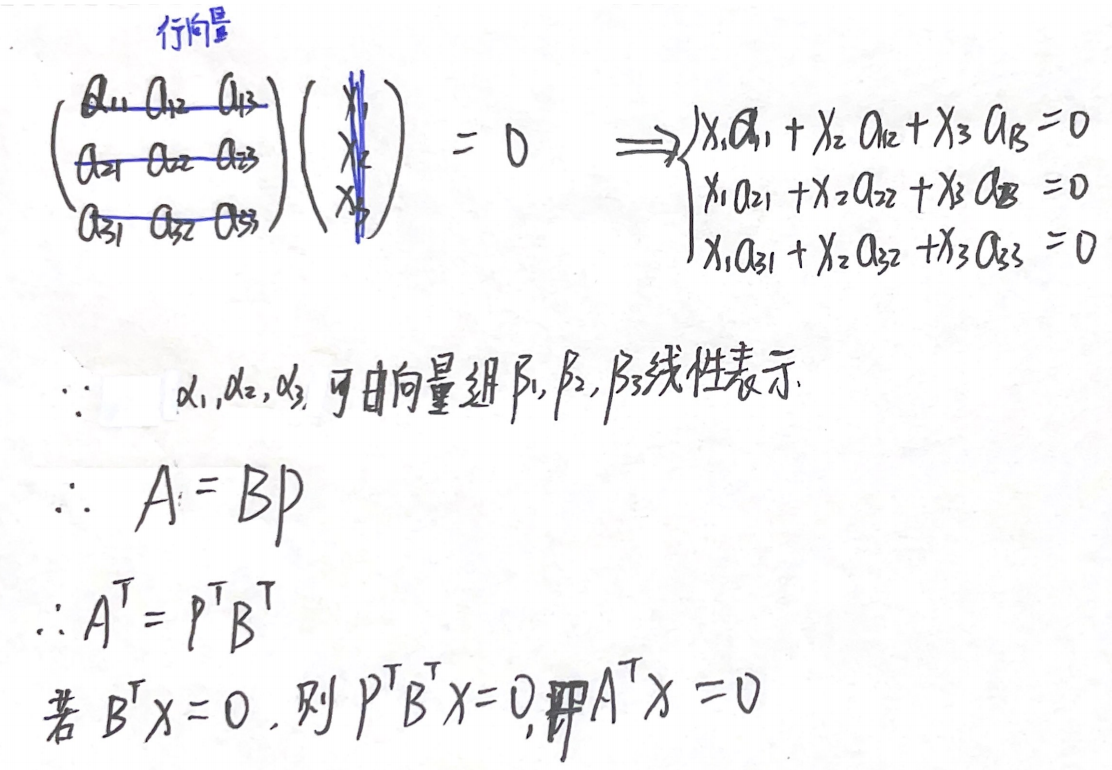 行向量
(a₁₁ a₁₂ a₁₃
a₂₁ a₂₂ a₂₃
a₃₁ a₃₂ a₃₃) (x₁
x₂
x₃) = 0 ⟹ { x₁a₁₁ + x₂a₁₂ + x₃a₁₃ = 0
x₁a₂₁ + x₂a₂₂ + x₃a₂₃ = 0
x₁a₃₁ + x₂a₃₂ + x₃a₃₃ = 0
∵ α₁,α₂,α₃ 可由向量组β₁,β₂,β₃线性表示
∴ A = BP
∴ Aᵀ = PᵀBᵀ
若 Bᵀx = 0, 则 PᵀBᵀx = 0, 即Aᵀx = 0